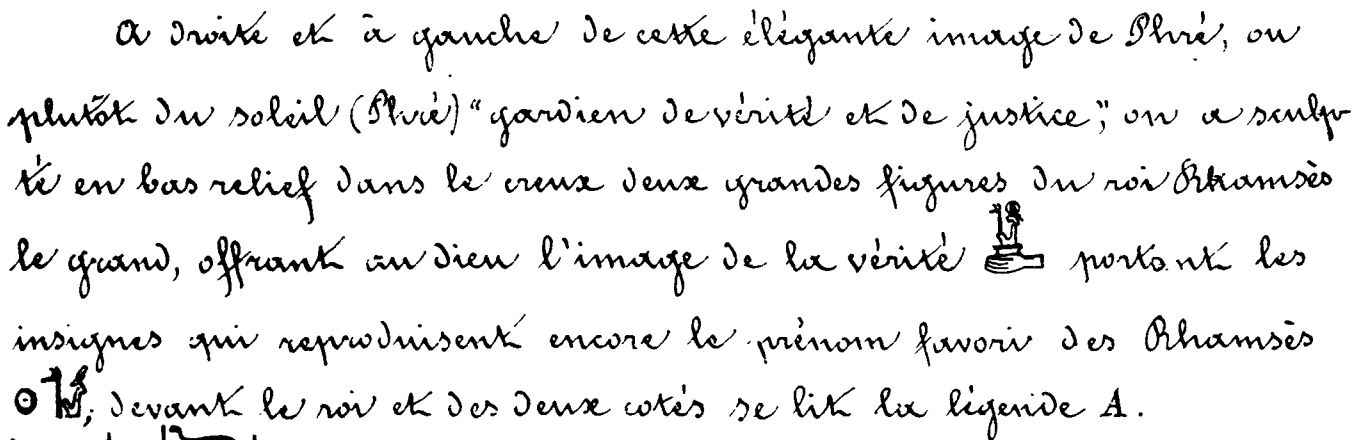 A droite et à gauche de cette élégante image de Phré, ou
plutôt du soleil (Phré) "gardien de vérité et de justice", on a sculp-
té en bas relief dans le creux deux grandes figures du roi Rhamsès
le grand, offrant au dieu l'image de la vérité portant les
insignes qui reproduisent encore le prénom favori des Rhamsès
; devant le roi et des deux cotés se lit la légende A.